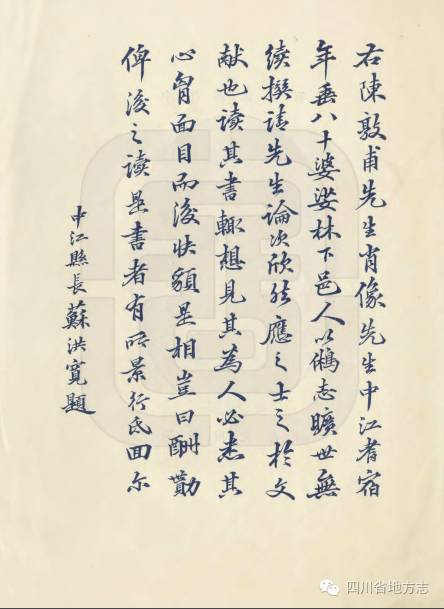 右陳甫先生肖像先生中江耆宿
年垂八十婆娑林下邑人以縣志曠世無
續撰請先生論次欣然應之士之於文
献也读其書輒想見其為人必悉其
心胷面目而後快貌是相豈曰酬勩
俾後之读是書者有所景行低回尔
中江縣長蘇洪寬題
四川省地方志